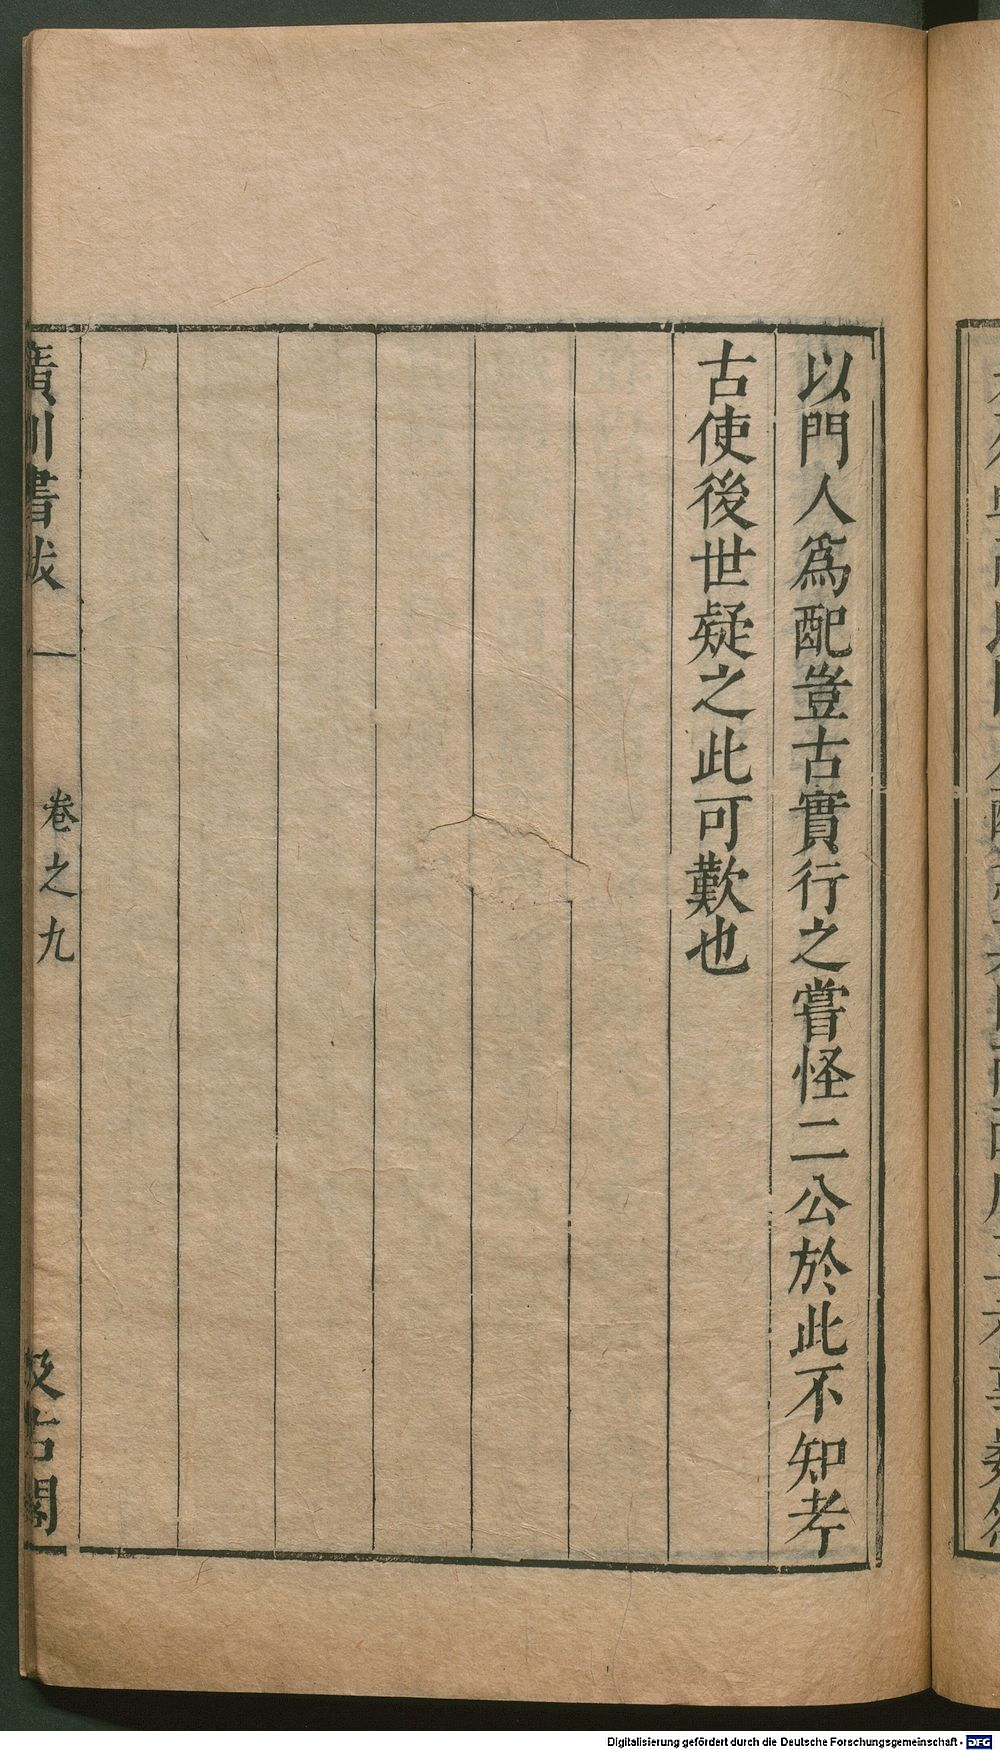 以門人爲配豈古實行之嘗怪二公於此不知考
古使後世疑之此可歎也
廣川書跋
卷之九
汲古閣
Digitalisierung gefördert durch die Deutsche Forschungsgemeinschaft - DFG